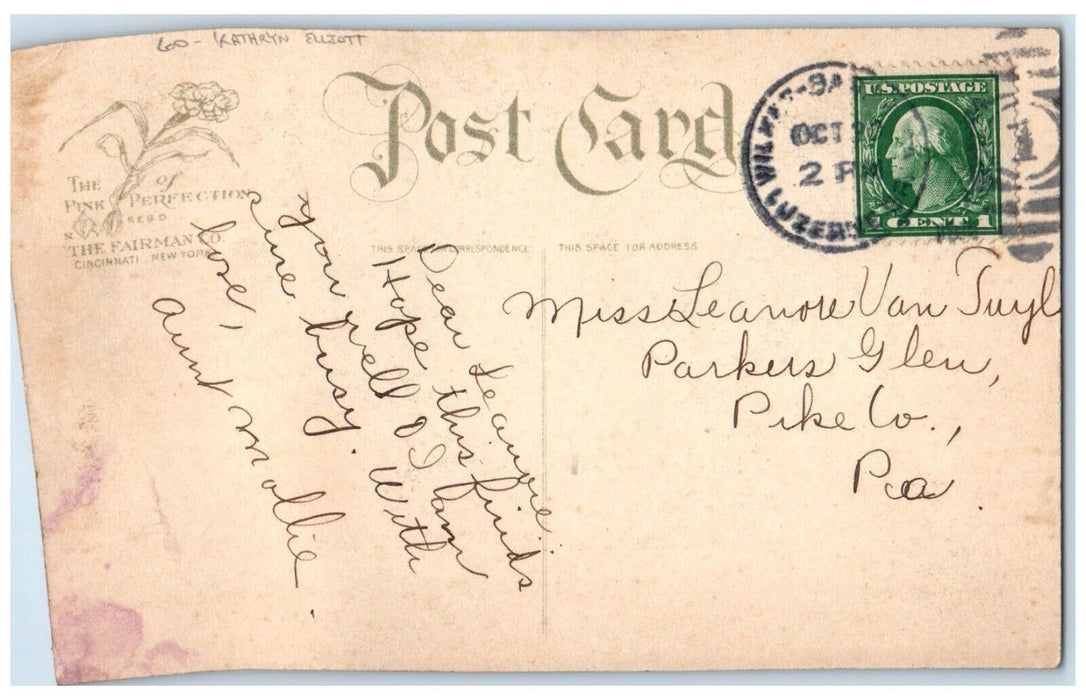 60 - KATHRYN ELLIOTT
Post Card
THE PINK of PERFECTION
REG'D
THE FAIRMAN CO.
CINCINNATI NEW YORK
WILKES-BA
OCT
2 P
U.S. POSTAGE
CENT 1
THIS SPACE CORRESPONDENCE
THIS SPACE FOR ADDRESS
Dear Leanore:
Hope this finds
you well & I am
sure busy. With
love,
Aunt Mollie.
Miss Leanore Van Tuyl
Parkers Glen,
Pike Co.,
Pa.